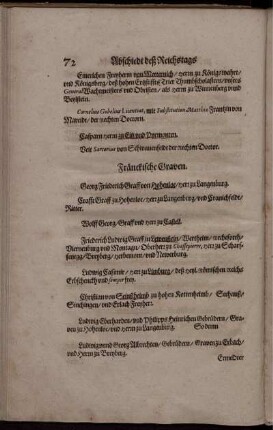 72 Abschiedt deß Reichstags
Emerichen Freyherrn von Metternich / Herrn zu Königs
und Königsberg / deß hohen Ertzstiffts Trier
General Wachtmeistern und Obristen / als Herrn zu Winnenberg und
Beylstein.
Cornelius Gobelius Licentiat, mit Substitution Matthiæ
der Rechten Doctorn.
Casparn Herrn zu Eltz und Pyrmonten.
Veit Sartorius von Schwanenfeldt der rechten Doctor.
Fränckische Graven.
Georg Friderich Graff von Hohenloe / Herr zu Langenburg.
Crafft Graff zu Hohenloe / Herr zu Langenburg / und Cranichfeldt /
Ritter.
Wolff Georg / Graff und Herr zu Castell.
Friederich Ludwig Graff zu Löwenstein / Wertheim / Rochefort /
Virnenburg und Montagu / Oberherr zu Chassepierre, Herr zu Scharf-
feneck / Breyberg / Herbemont / und Newenburg.
Ludwig Casimir / Herr zu Limburg / deß Heyl. Römischen Reichs
Erbschenck und Semper frey.
Christian von
und Freyherr.
Ludwig Eberharden / und Philipps Heinrichen Gebrüdern / Gra-
ven zu Hohenloe / und Herrn zu Langenburg. So denn
Ludwig und Georg Albrechten / Gebrüdern / Graven zu Erbach /
und Herrn zu Breyberg.
Ermeldter